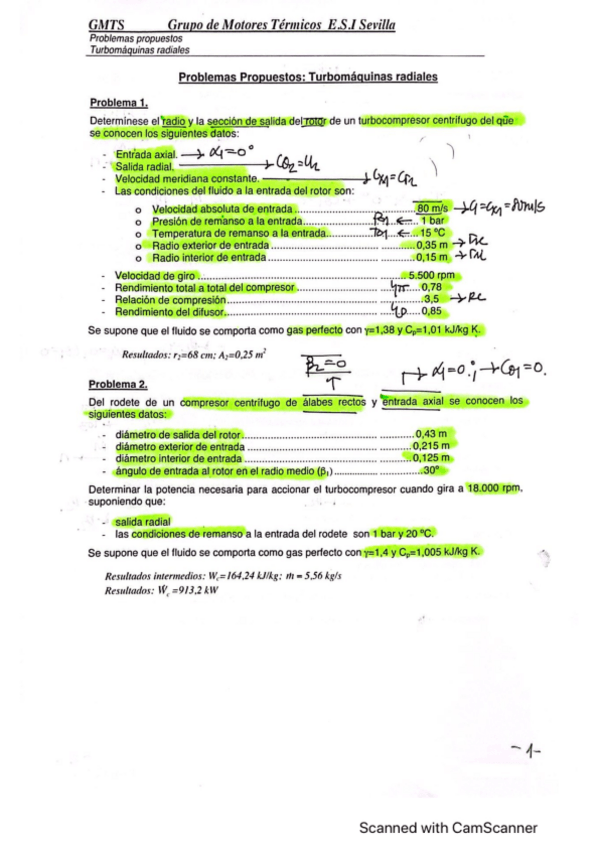 GMTS Grupo de Motores Térmicos E.S.I Sevilla
Problemas propuestos
Turbomáquinas radiales
Problemas Propuestos: Turbomáquinas radiales
Problema 1.
Determínese el radio y la sección de salida del rotor de un turbocompresor centrífugo del que
se conocen los siguientes datos:
- Entrada axial. → α1=0°
- Salida radial. → Cθ2=U2
- Velocidad meridiana constante. → Cx1=Cr2
- Las condiciones del fluido a la entrada del rotor son:
o Velocidad absoluta de entrada 80 m/s → C1=Cx1=80m/s
o Presión de remanso a la entrada P01 ← 1 bar
o Temperatura de remanso a la entrada T01 ← 15 ºC
o Radio exterior de entrada 0,35 m →
o Radio interior de entrada 0,15 m →
- Velocidad de giro 5.500 rpm
- Rendimiento total a total del compresor ηTT 0,78
- Relación de compresión 3,5 → Rc
- Rendimiento del difusor ηD 0,85
Se supone que el fluido se comporta como gas perfecto con γ=1,38 y Cp=1,01 kJ/kg K.
Resultados: r2=68 cm; A2=0,25 m²
β2=0 → α1=0.; → Cθ1=0.
↑
Problema 2.
Del rodete de un compresor centrífugo de álabes rectos y entrada axial se conocen los
siguientes datos:
- diámetro de salida del rotor 0,43 m
- diámetro exterior de entrada 0,215 m
- diámetro interior de entrada 0,125 m
- ángulo de entrada al rotor en el radio medio (β1) 30º
Determinar la potencia necesaria para accionar el turbocompresor cuando gira a 18.000 rpm,
suponiendo que:
- salida radial
- las condiciones de remanso a la entrada del rodete son 1 bar y 20 ºC.
Se supone que el fluido se comporta como gas perfecto con γ=1,4 y Cp=1,005 kJ/kg K.
Resultados intermedios: Wc=164,24 kJ/kg; ṁ = 5,56 kg/s
Resultados: Ẇc =913,2 kW
-1-
Scanned with CamScanner